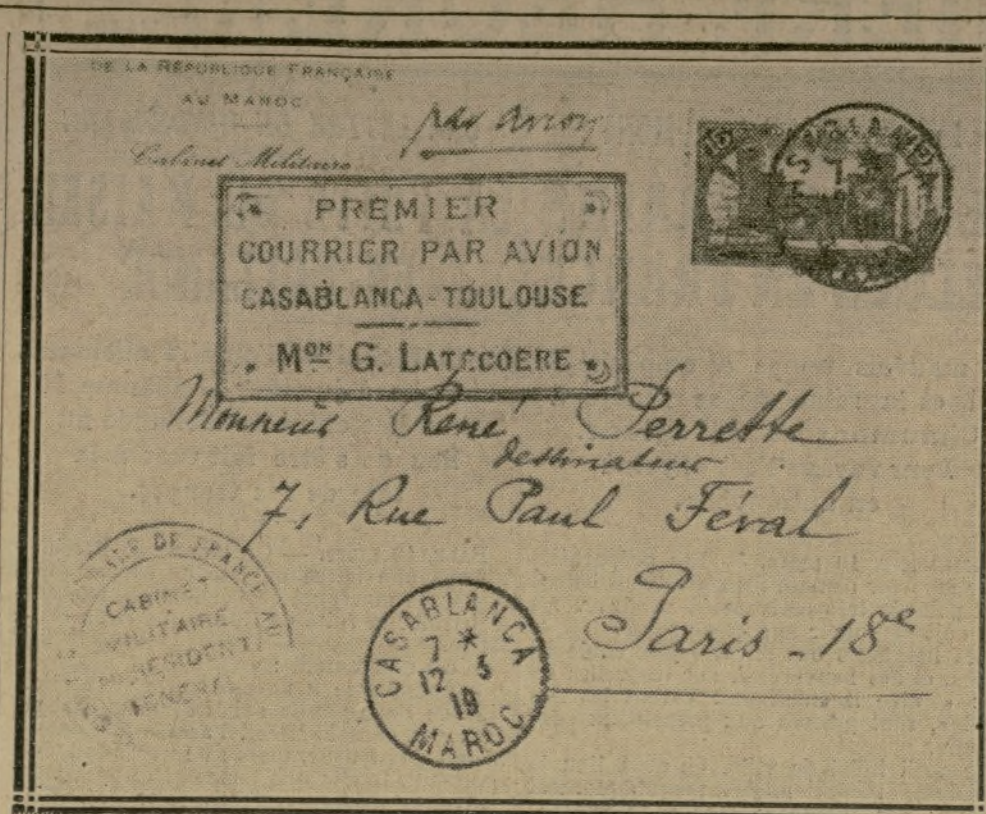 DE LA REPUBLIQUE FRANÇAISE
AU MAROC
Cabinet Militaire
par avion
PREMIER
COURRIER PAR AVION
CASABLANCA-TOULOUSE
Mon G. LATÉCOÈRE
Monsieur René Perrette
dessinateur
7, Rue Paul Féval
Paris - 18e
DE FRANCE AU
CABINET
MILITAIRE
RESIDENT
GÉNÉRAL
CASABLANCA
7 *
12 3
19
MAROC